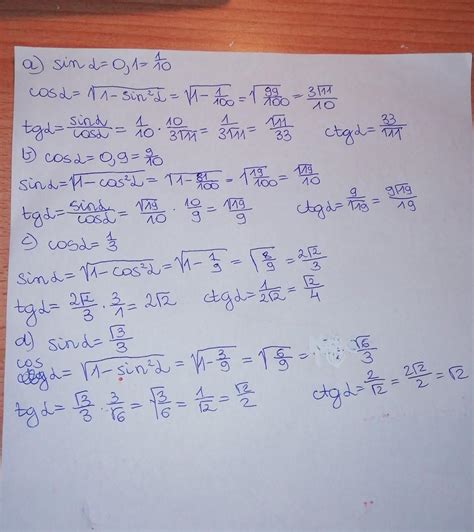 a) sin α = 0,1 = 1/10
cos α = √(1-sin²α) = √(1-1/100) = √(99/100) = 3√11/10
tg α = sin α/cos α = 1/10 · 10/3√11 = 1/3√11 = √11/33 ctg α = 33/√11
b) cos α = 0,9 = 9/10
sin α = √(1-cos²α) = √(1-81/100) = √(19/100) = √19/10
tg α = sin α/cos α = √19/10 · 10/9 = √19/9 ctg α = 9/√19 = 9√19/19
c) cos α = 1/3
sin α = √(1-cos²α) = √(1-1/9) = √(8/9) = 2√2/3
tg α = 2√2/3 · 3/1 = 2√2 ctg α = 1/2√2 = √2/4
d) sin α = √3/3
cos α = √(1-sin²α) = √(1-3/9) = √(6/9) = √6/3
tg α = √3/3 · 3/√6 = √(3/6) = 1/√2 = √2/2 ctg α = 2/√2 = 2√2/2 = √2